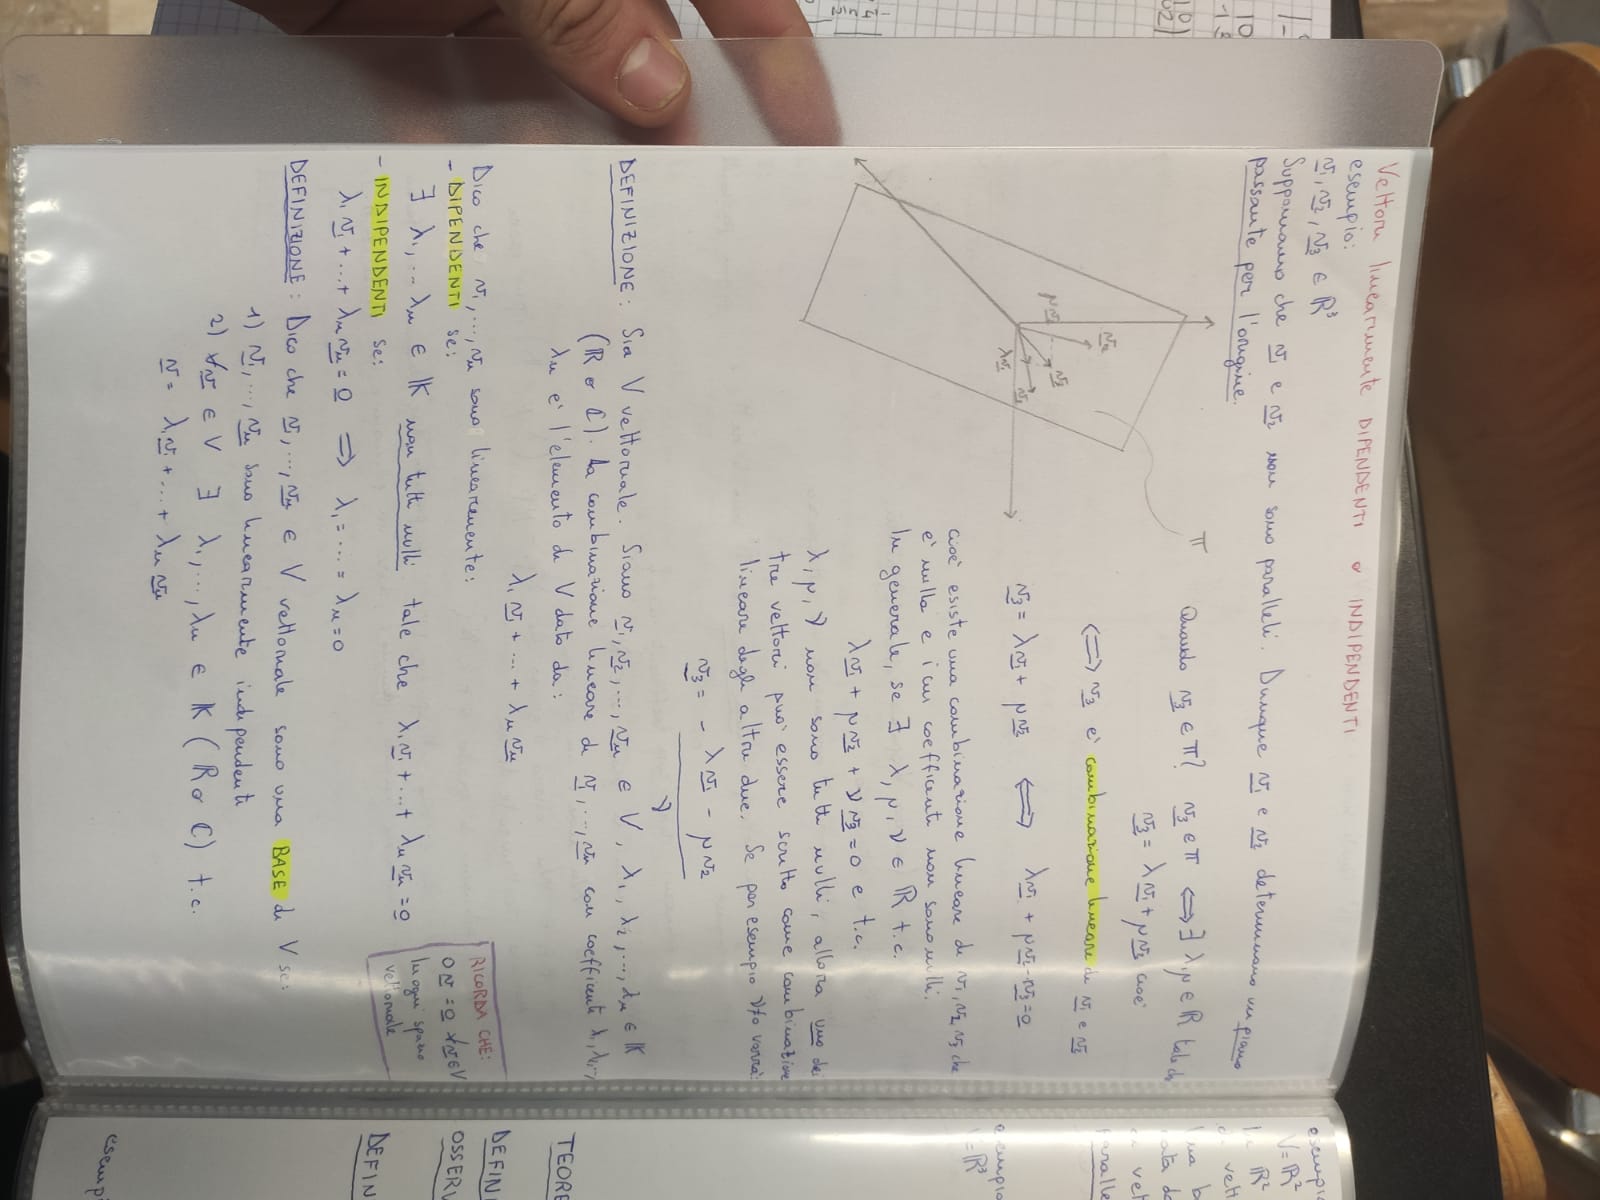 Vettori linearmente DIPENDENTI o INDIPENDENTI
esempio:
v1, v2, v3 ∈ ℝ³
Supponiamo che v1 e v2 non sono paralleli. Dunque v1 e v2 determinano un piano
passante per l'origine.
π
Quando v3 ∈ π? v3 ∈ π ⟺ ∃ λ, μ ∈ ℝ tale che
v3 = λv1 + μv2 cioè
⟺ v3 è combinazione lineare di v1 e v2
v3 = λv1 + μv2 ⟺ λv1 + μv2 - v3 = 0
cioè esiste una combinazione lineare di v1, v2, v3 che
è nulla e i cui coefficienti non sono nulli.
In generale, se ∃ λ, μ, ν ∈ ℝ t.c.
λv1 + μv2 + νv3 = 0 e t.c.
λ, μ, ν non sono tutti nulli, allora uno dei
tre vettori può essere scritto come combinazione
lineare degli altri due. Se per esempio ν≠0 verrà:
v3 = - λv1 - μv2
ν
μv2
v2
v3
λv1
v1
DEFINIZIONE: Sia V vettoriale. Siano v1, v2, ..., vn ∈ V, λ1, λ2, ..., λn ∈ 𝕂
(ℝ o ℂ). La combinazione lineare di v1, ..., vn con coefficienti λ1, λ2, ...,
λn è l'elemento di V dato da:
λ1v1 + ... + λnvn
Dico che v1, ..., vn sono linearmente:
- DIPENDENTI se:
∃ λ1, ... λn ∈ 𝕂 non tutti nulli tale che λ1v1 + ... + λnvn = 0
- INDIPENDENTI se:
λ1v1 + ... + λnvn = 0 ⟹ λ1 = ... = λn = 0
RICORDA CHE:
0v = 0 ∀v ∈ V
In ogni spazio
vettoriale
DEFINIZIONE: Dico che v1, ..., vn ∈ V vettoriale sono una BASE di V se:
1) v1, ..., vn sono linearmente indipendenti
2) ∀v ∈ V ∃ λ1, ..., λn ∈ 𝕂 (ℝ o ℂ) t.c.
v = λ1v1 + ... + λnvn
V = ℝ²
V = ℝ³
TEORE
DEFIN
OSSERV
DEFIN
esemp